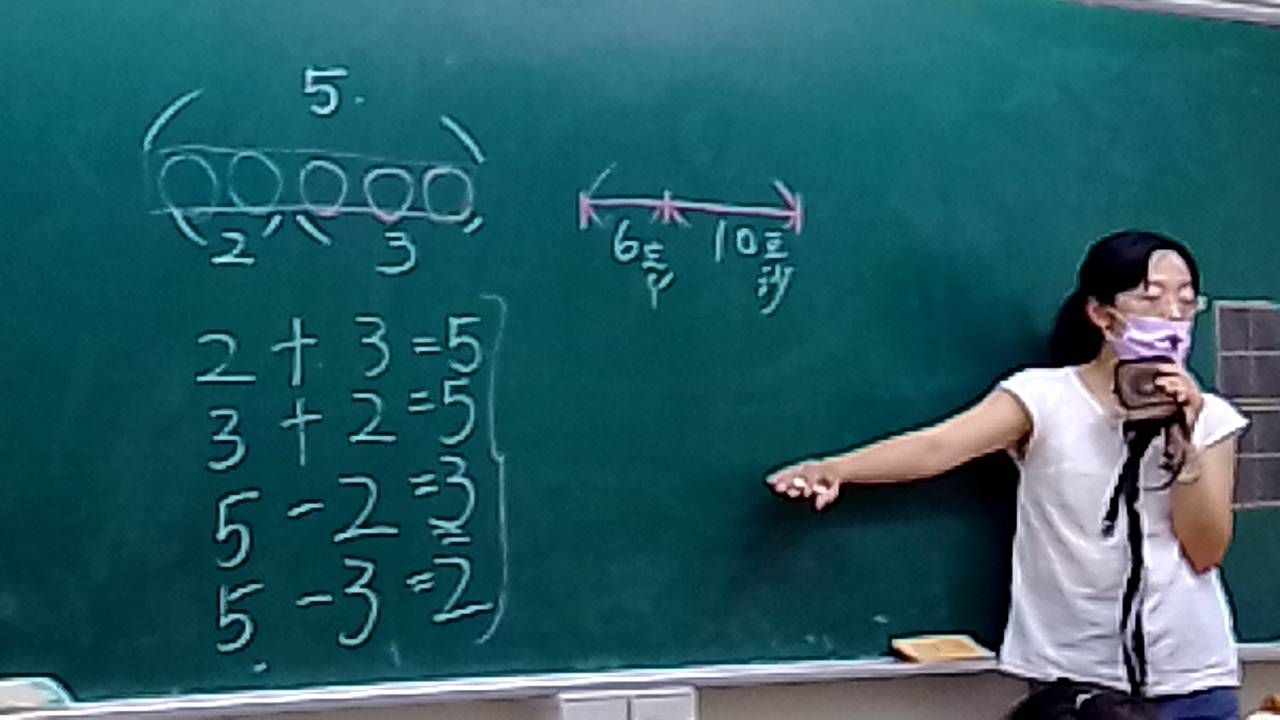 5.
2 3
2 + 3 = 5
3 + 2 = 5
5 - 2 = 3
5 - 3 = 2
6
10豆
沙